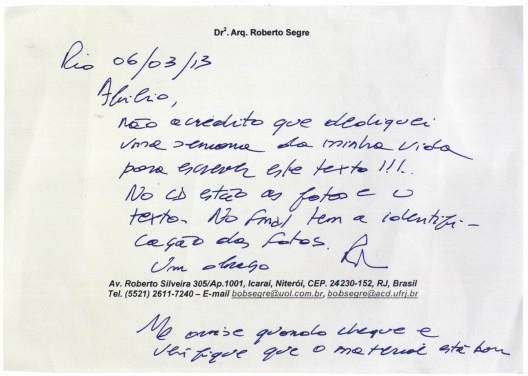 Dr². Arq. Roberto Segre
Rio 06/03/13
Abilio,
Não acredito que dediquei
uma semana da minha vida
para escrever este texto !!!.
No CD estão as fotos e o
texto. No final tem a identifi-
cação das fotos.
Um abraço
Av. Roberto Silveira 305/Ap.1001, Icaraí, Niterói, CEP. 24230-152, RJ, Brasil
Tel. (5521) 2611-7240 – E-mail bobsegre@uol.com.br, bobsegre@acd.ufrj.br
Me avise quando chegue e
verifique que o material está bom